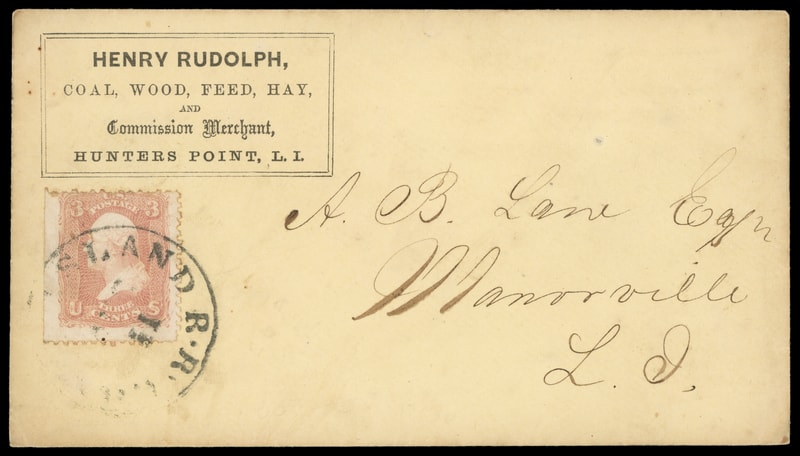 HENRY RUDOLPH,
COAL, WOOD, FEED, HAY,
AND
Commission Merchant,
HUNTERS POINT, L. I.
3 POSTAGE 3
U THREE CENTS S
ISLAND R.R.
A. B. Lane Esqr
Manorville
L. I.